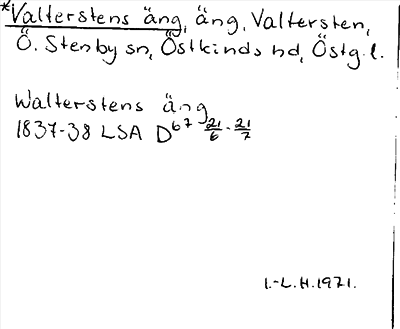 *Valterstens äng, äng, Valtersten,
Ö. Stenby sn, Östkinds hd, Östg. l.
Walterstens äng
1837-38 LSA D67 21/6 - 21/7
I.-L.H.1971.